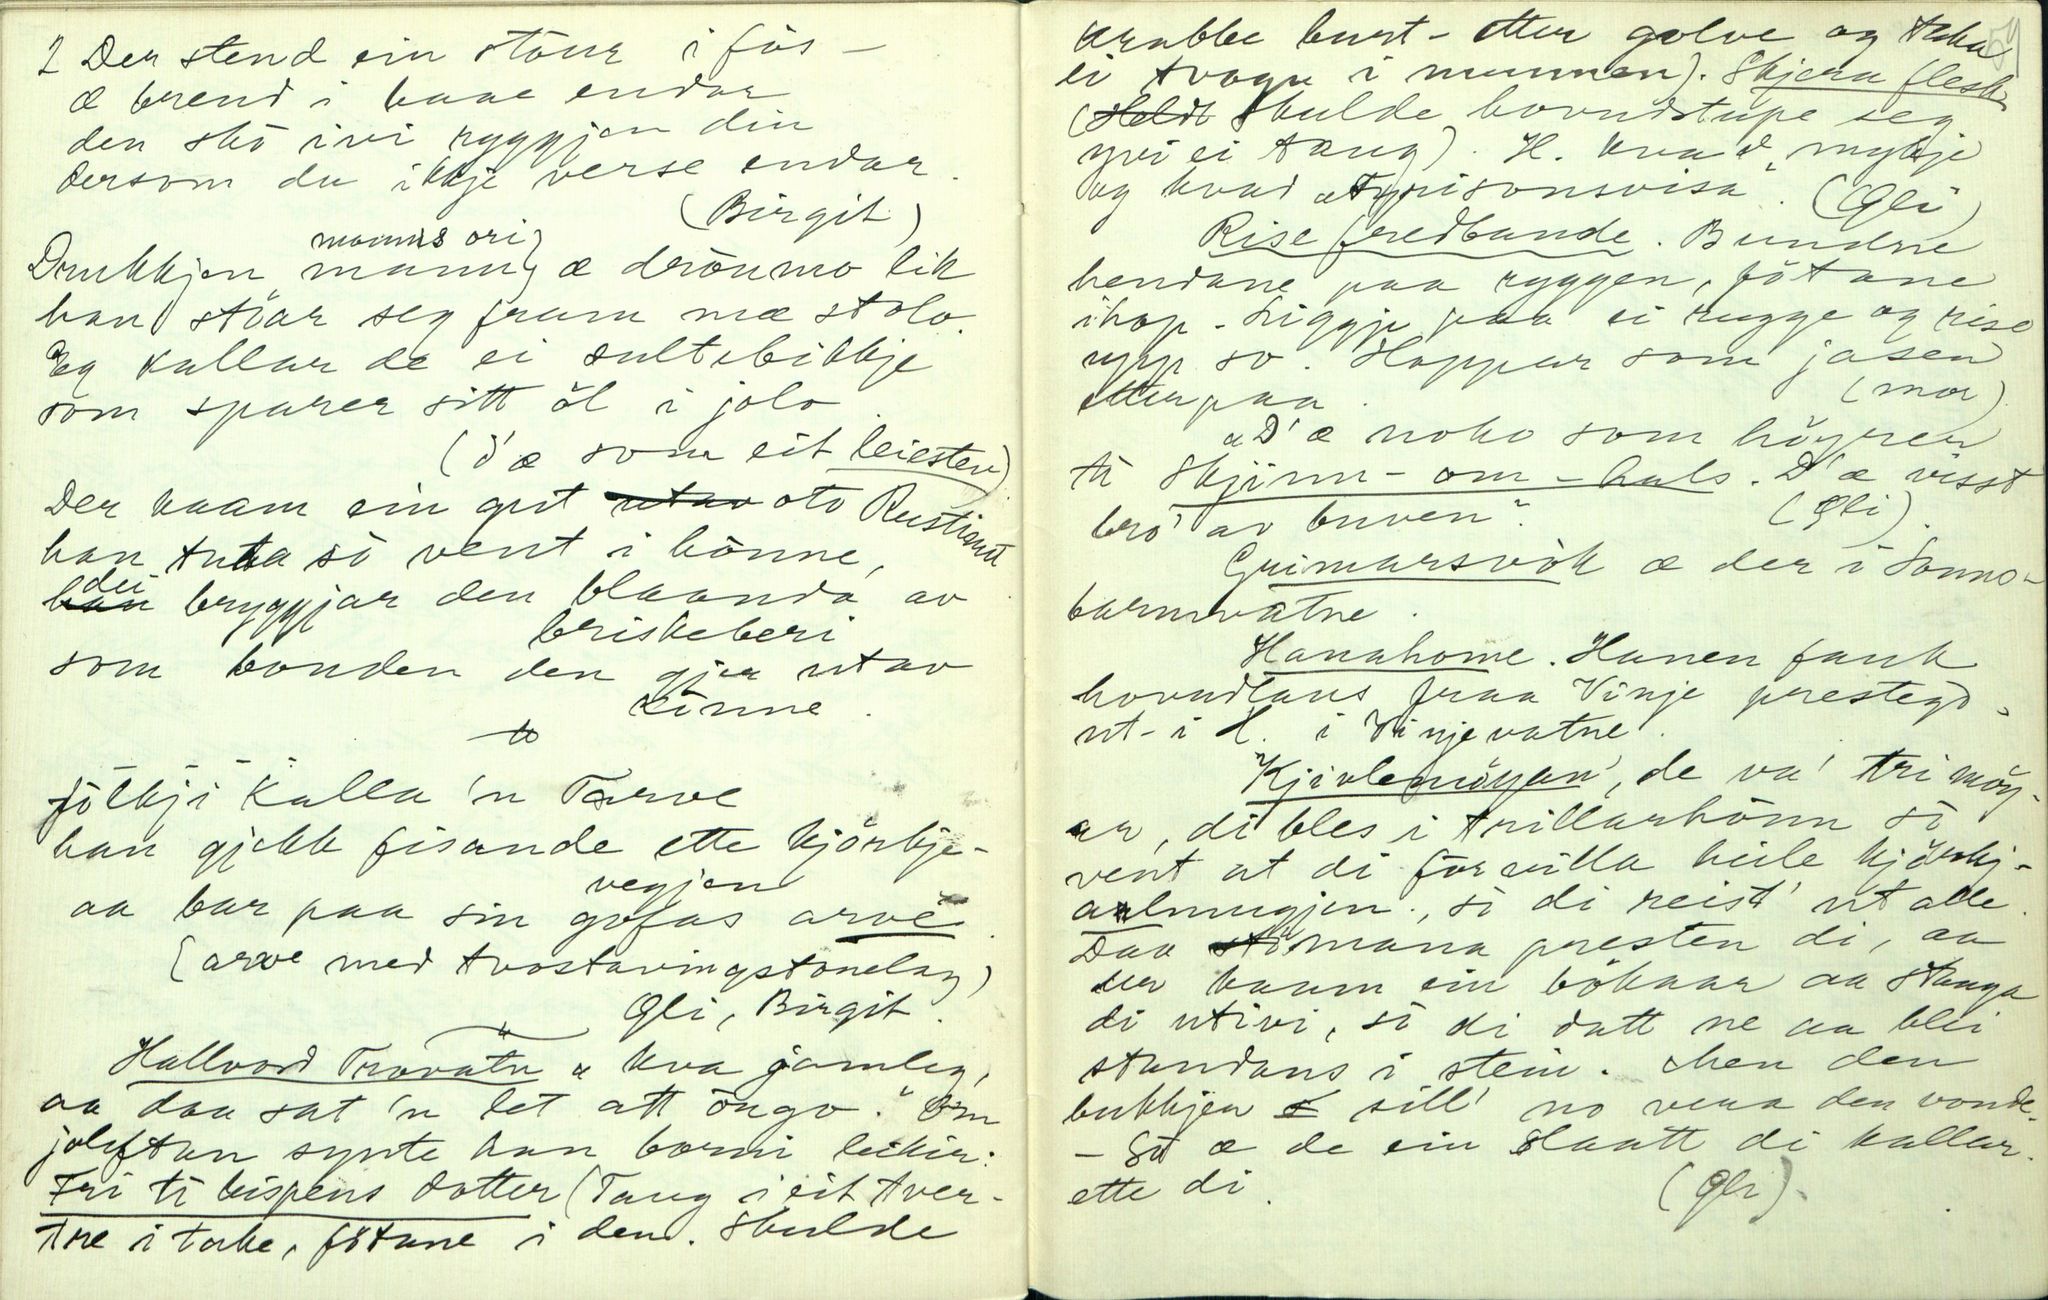 2 Der stend ein stöur i fös –
æ brend i baae endar
den skò ivi ryggjen din
dersom du ikkje verse endar.
(Birgit)
manns ori
Drukkjen mann, æ dröumo lik
han stöar seg fram mæ stolo.
Eg kallar de ei sultebikkje
som sparer sitt öl i jolo.
(d'æ som eit leiesten)
Der kaam ein gut utav oto Rusti
han tuta sò vent i hönne,
dei
han bryggjar den blaanda av
briskeberi
som bonden den gjer utav
kinne.
Fölkji kalla 'n Tarve
han gjekk fisande ette kjörkje-
vegjen
aa bar paa sin gofas arve.
(arve med tvostavingstonelag)
Gli, Birgit.
Hallvord Trovatn "kva gamleg,
aa daa sat 'n let att öugo." Om
joleftan synte han borni leikir:
Fri ti bispens dotter (Taug i eit tver-
tre i take, fötane i den. Skulde
krabbe burt-etter golve og taka
54
ei tvogu i munnen). Skjera flesk
(Heldt Skulde hovudstupe seg
yvi ei taug). H. kvad mykje
og kvad "Tyrisonsvisa". (Gli)
Rise fredbande. Bundne
hendane paa ryggen, fötane
ihop. Liggje paa ei rugge og rise
upp so. Hoppar som jasen
etterpaa. (mor)
"D'æ noko som höyrer
tå skjinn-om-hals. D'æ visst
bro' av buven". (Gli).
Grimarsvòk æ der i Sonno-
barmvatne.
Hanahome. Hanen fauk
hovudlaus fraa Vinje prestegd.
ut-i H. i Vinjevatne.
Kjivlemöyan', de va' tri möy-
ar, di bles i trillarhönn sò
vent at di forvilla heile kjörkj-
aalmugjen, sò di reist' ut alle.
Daa mana presten di, aa
der kaam ein bökaar aa stanga
di utivi, sò di datt ne aa blei
standans i stein. Men den
bukkjen sill' no vera den vonde.
– Sò æ de ein slaatt di kallar
ette di. (Gli).